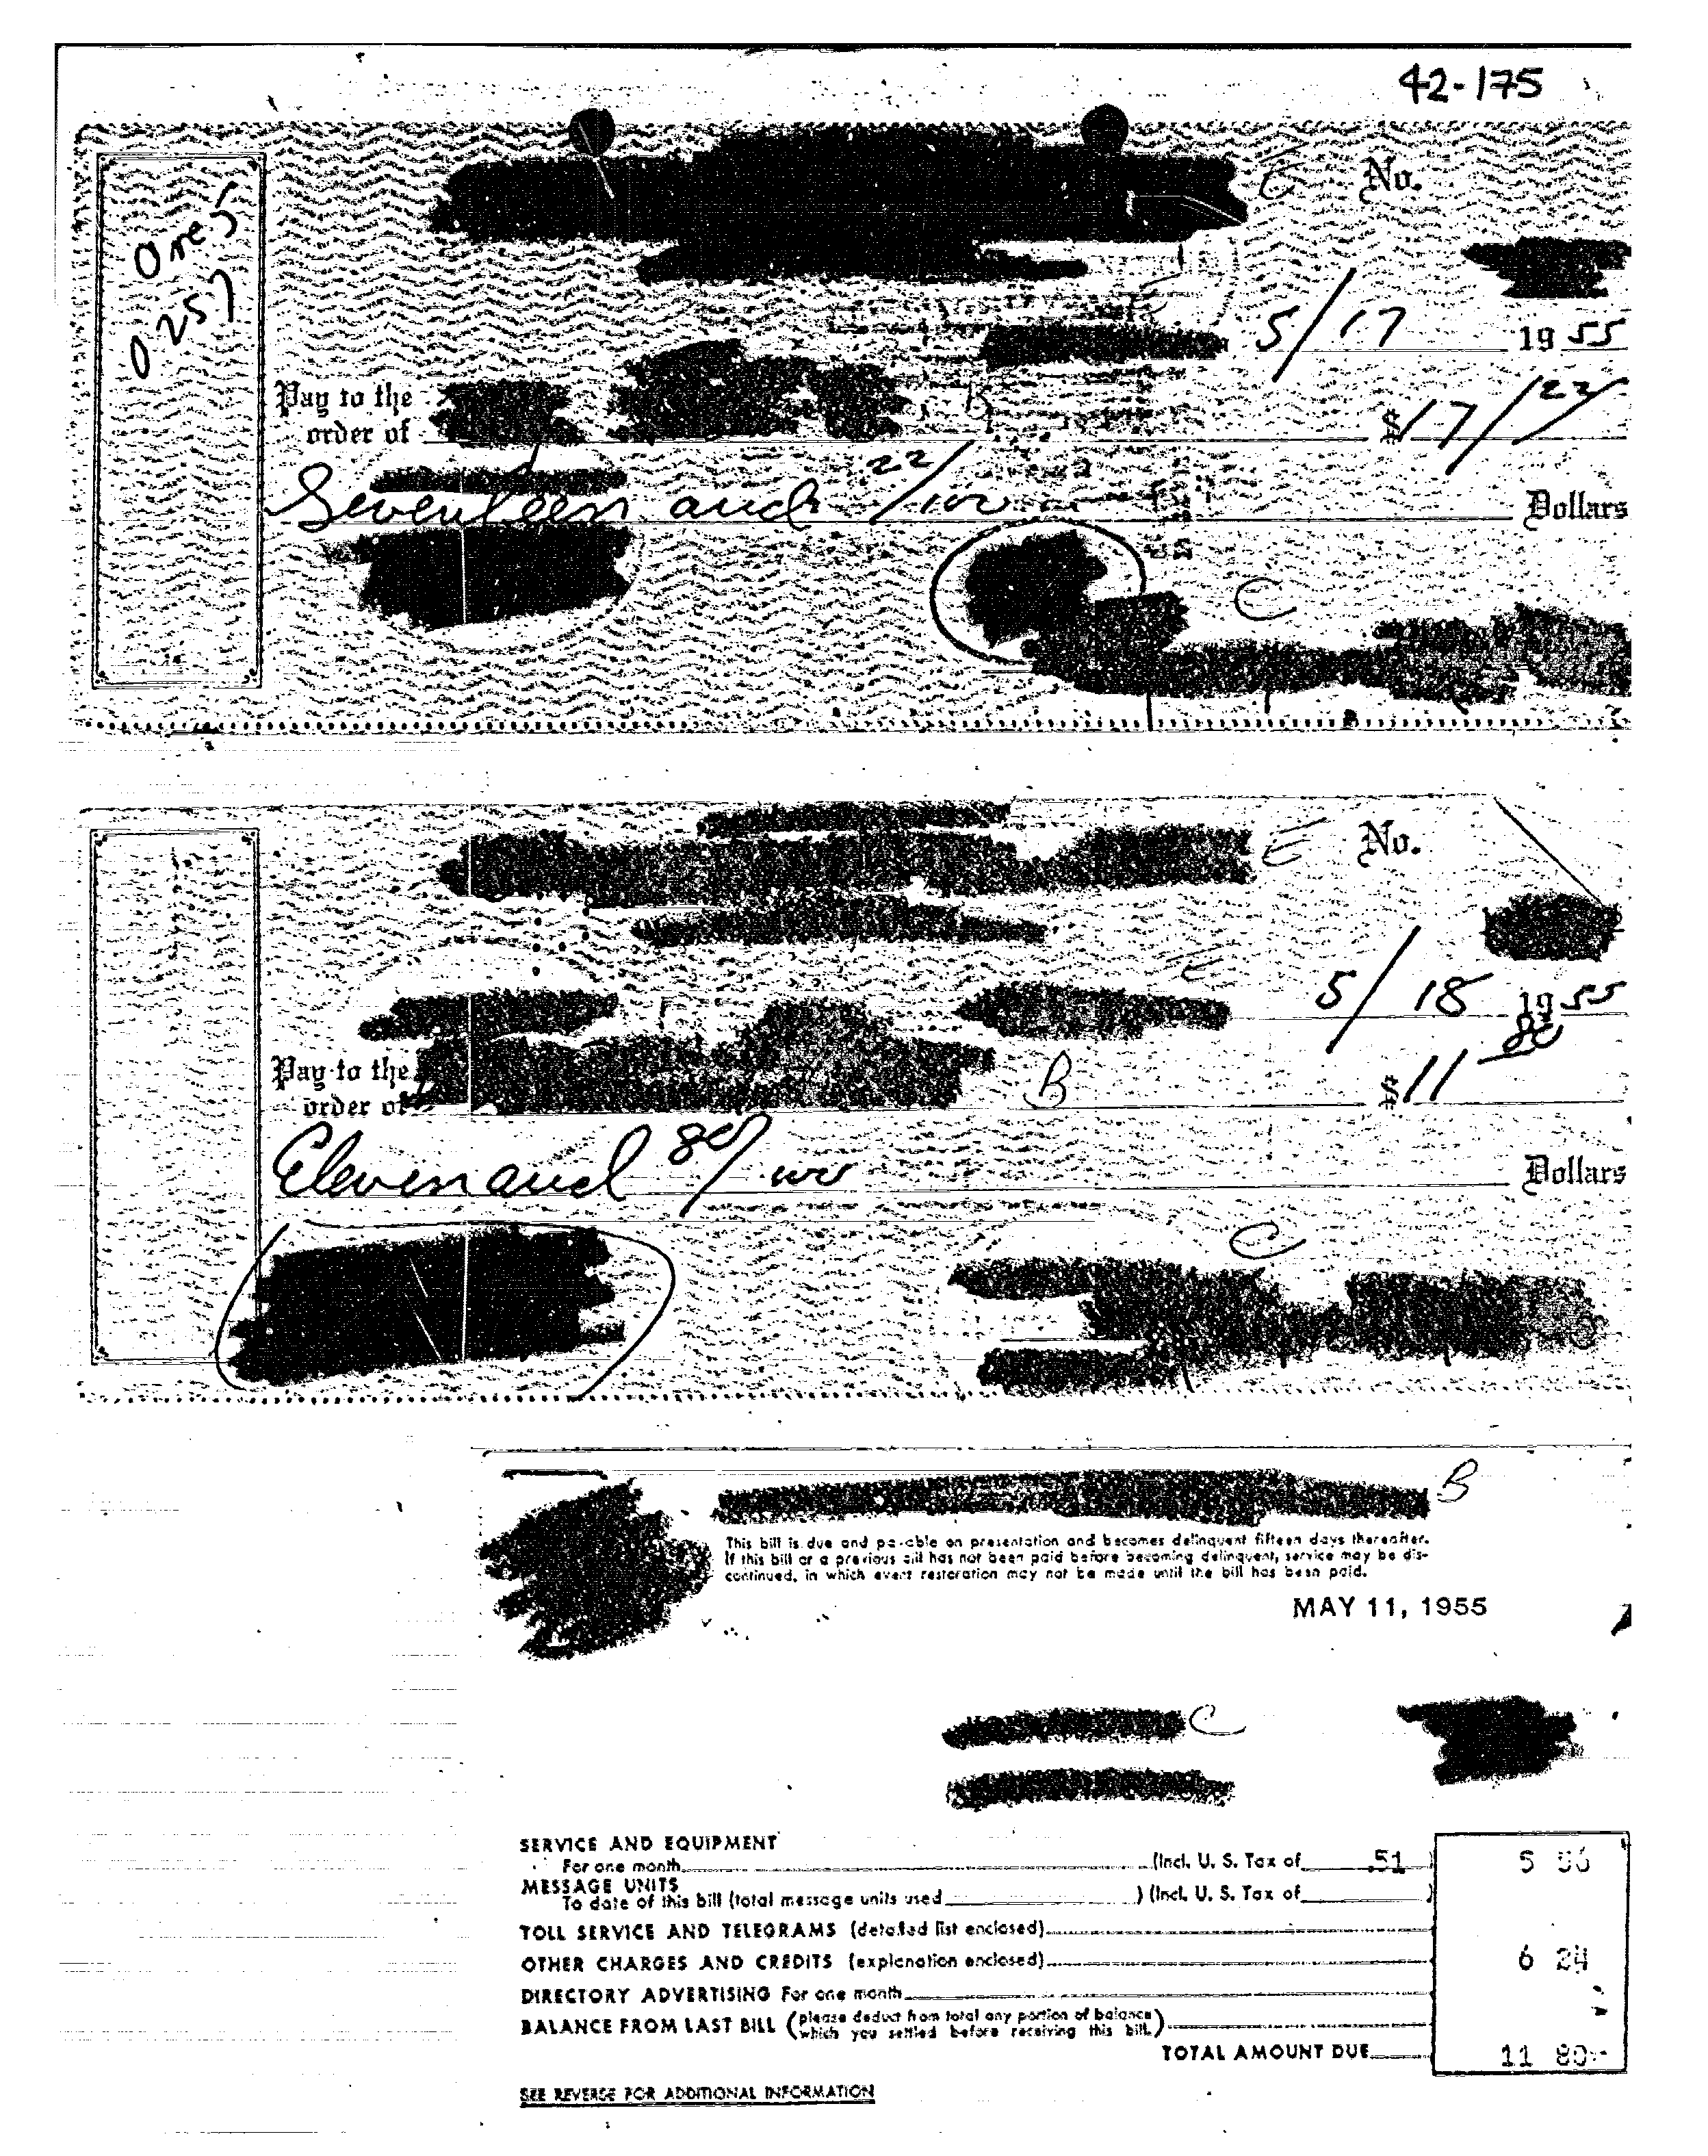 42-175
Ores
0257
E
No.
5/17 1955
Pay to the
order of B $17/22
Seventeen and 22/100 Dollars
C
E
No.
E
5/18 1955
Pay to the
order of B $11 80
Eleven and 80/100 Dollars
C
B
This bill is due and payable on presentation and becomes delinquent fifteen days thereafter.
If this bill or a previous bill has not been paid before becoming delinquent, service may be dis-
continued, in which event restoration may not be made until the bill has been paid.
MAY 11, 1955
C
SERVICE AND EQUIPMENT
For one month (Incl. U. S. Tax of .51) 5 56
MESSAGE UNITS
To date of this bill (total message units used ) (Incl. U. S. Tax of )
TOLL SERVICE AND TELEGRAMS (detailed list enclosed)
OTHER CHARGES AND CREDITS (explanation enclosed) 6 24
DIRECTORY ADVERTISING For one month
BALANCE FROM LAST BILL (please deduct from total any portion of balance
which you settled before receiving this bill.)
TOTAL AMOUNT DUE 11 80
SEE REVERSE FOR ADDITIONAL INFORMATION